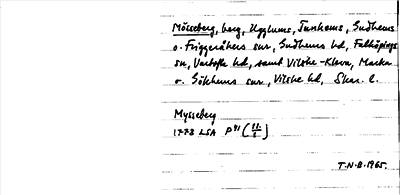 Mösseberg, berg, Ugglums, Junkems, Gudhems
o. Friggeråkers snr, Gudhems hd, Falköpings
sn, Vartofta hd, samt Vilske-Kleva, Marka
o. Sökhems snr, Vilske hd, Skar. l.
Mysseberg
1773 LSA P91 (22/1)
T.N.B. 1965.